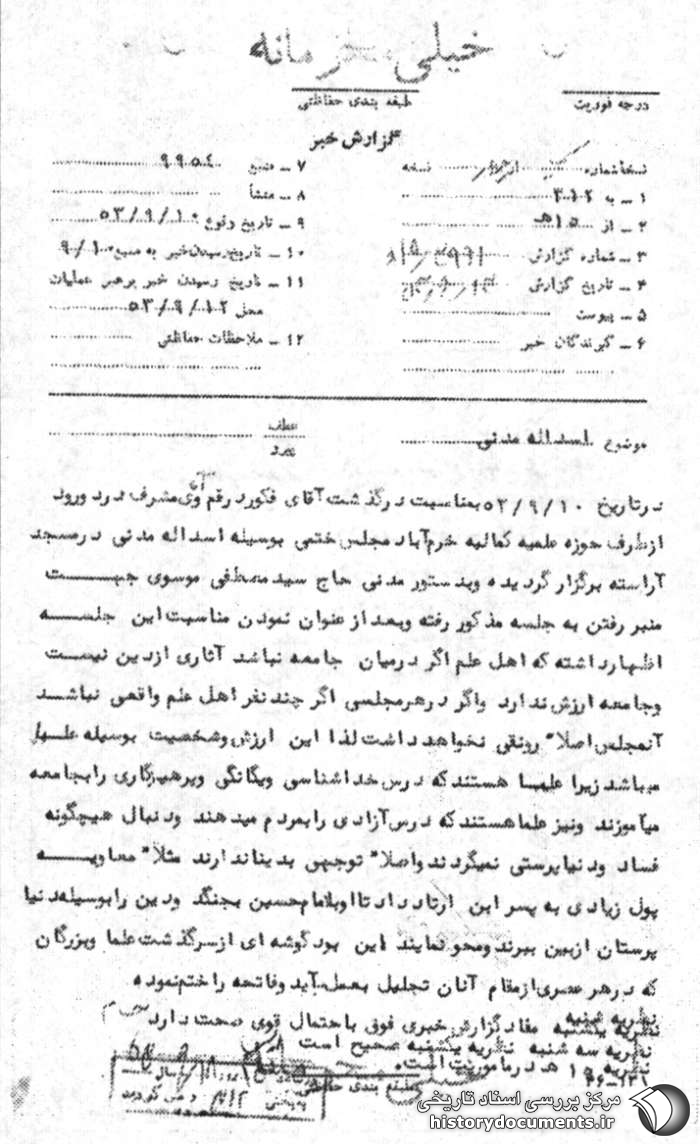 خیلی محرمانه
درجه فوریت
طبقه بندی حفاظتی
گزارش خبر
نسخه شماره از نسخه
۱ ـ به ۳۱۲
۲ ـ از ۱۵هـ
۳ ـ شماره گزارش
۴ ـ تاریخ گزارش
۵ ـ پیوست
۶ ـ گیرندگان خبر
۷ ـ منبع ۹۹۵٤
۸ ـ منشأ
۹ ـ تاریخ وقوع ۵۳/۹/۱۰
۱۰ ـ تاریخ رسیدن خبر به منبع ۹/۱۰
۱۱ ـ تاریخ رسیدن خبر برهبر عملیات
محل ۵۳/۹/۱۲
۱۲ ـ ملاحظات حفاظتی
موضوع اسداله مدنی
عطف
پیرو
در تاریخ ۵۳/۹/۱۰ بمناسبت درگذشت آقای مشرف در دورود
ازطرف حوزه علمیه کمالیه خرم آباد مجلس ختمی بوسیله اسداله مدنی درمسجد
آراسته برگزار گردیده وبدستور مدنی حاج سید مصطفی موسوی جهت
منبر رفتن به جلسه مذکور رفته وبعد از عنوان نمودن مناسبت این جلسه
اظهارداشته که اهل علم اگر درمیان جامعه نباشد آثاری ازدین نیست
وجامعه ارزش ندارد واگر درهرمجلسی اگر چند نفر اهل علم واقعی نباشد
آنمجلس اصلا" رونقی نخواهد داشت لذا این ارزش وشخصیت بوسیله علما
میباشد زیرا علما هستند که درس خداشناسی ویگانگی وپرهیزگاری رابجامعه
میآموزند ونیز علما هستند که درس آزادی رابمردم میدهند ودنبال هیچگونه
فساد ودنیاپرستی نمیگردند واصلا" توجهی بدینا ندارند مثلا" معاویه
پول زیادی به پسر این ارتاد داد تا اوباامام حسین بجنگد ودین رابوسیله دنیا
پرستان ازبین ببرند ومحو نمایند این بود گوشه ای ازسرگذشت علما وبزرگان
که درهر عصری ازمقام آنان تجلیل بعمل میآید وفاتحه راختم نموده
نظریه شنبه
نظریه یکشنبه مفاد گزارش خبری فوق باحتمال قوی صحت دارد
نظریه سه شنبه نظریه یکشنبه صحیح است
نظریه ۱۵ هـ درماموریت است.
۴۶-۱۳۱
طبقه بندی حفاظتی
مرکز بررسی اسناد تاریخی
historydocuments.ir